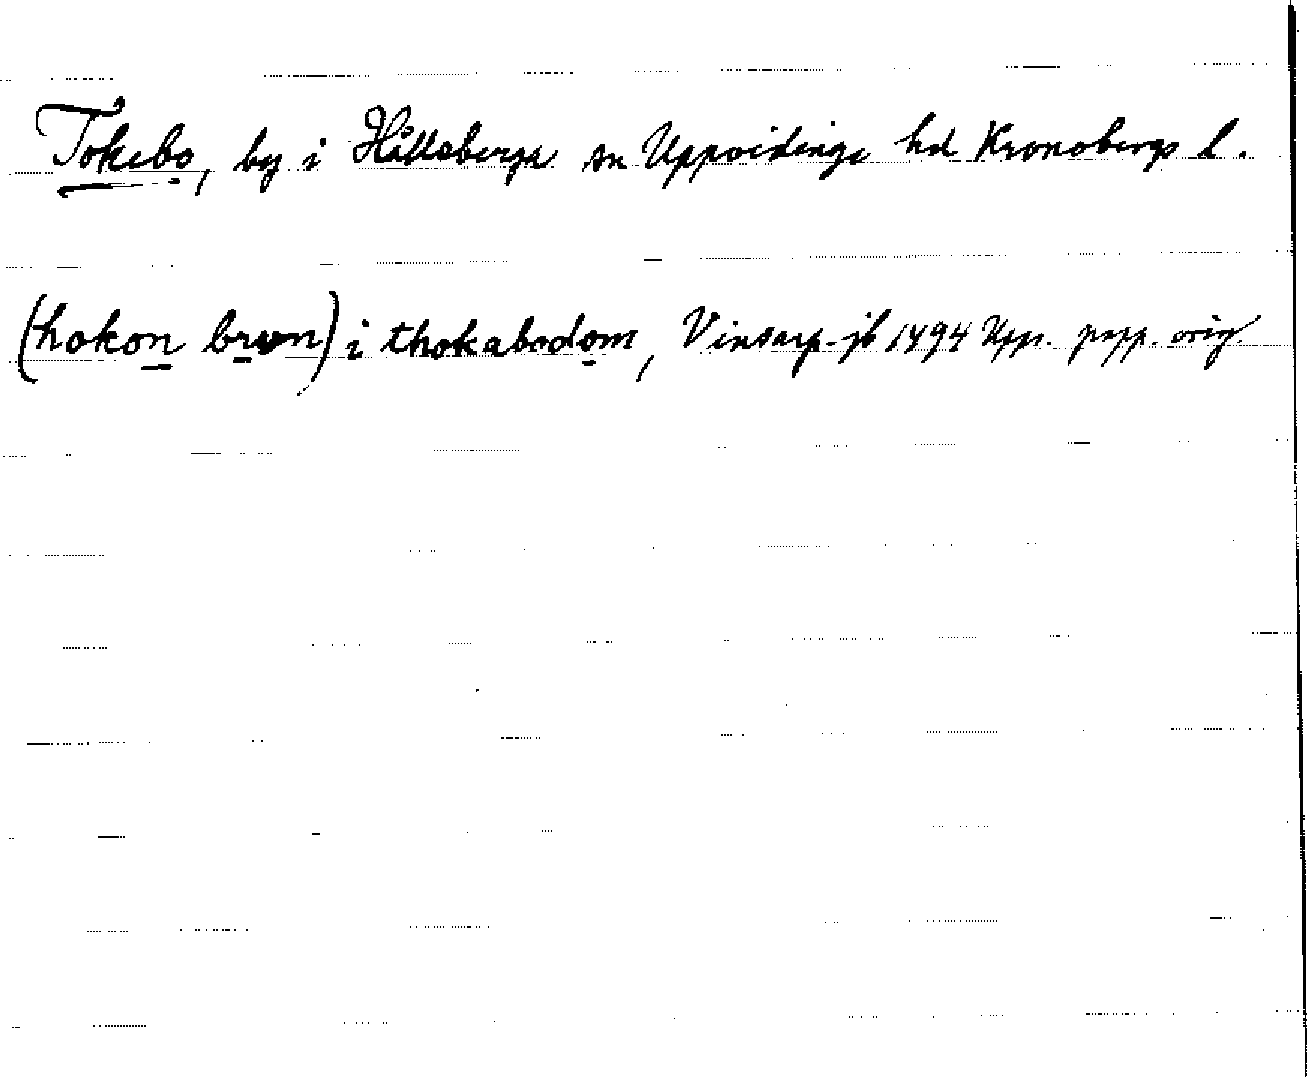 Tokebo, by i Hälleberga sn Uppvidinge hd Kronobergs l.
(hokon brwn) i thokabodom, Vinsarp-jb 1494 Upps. papp. orig.